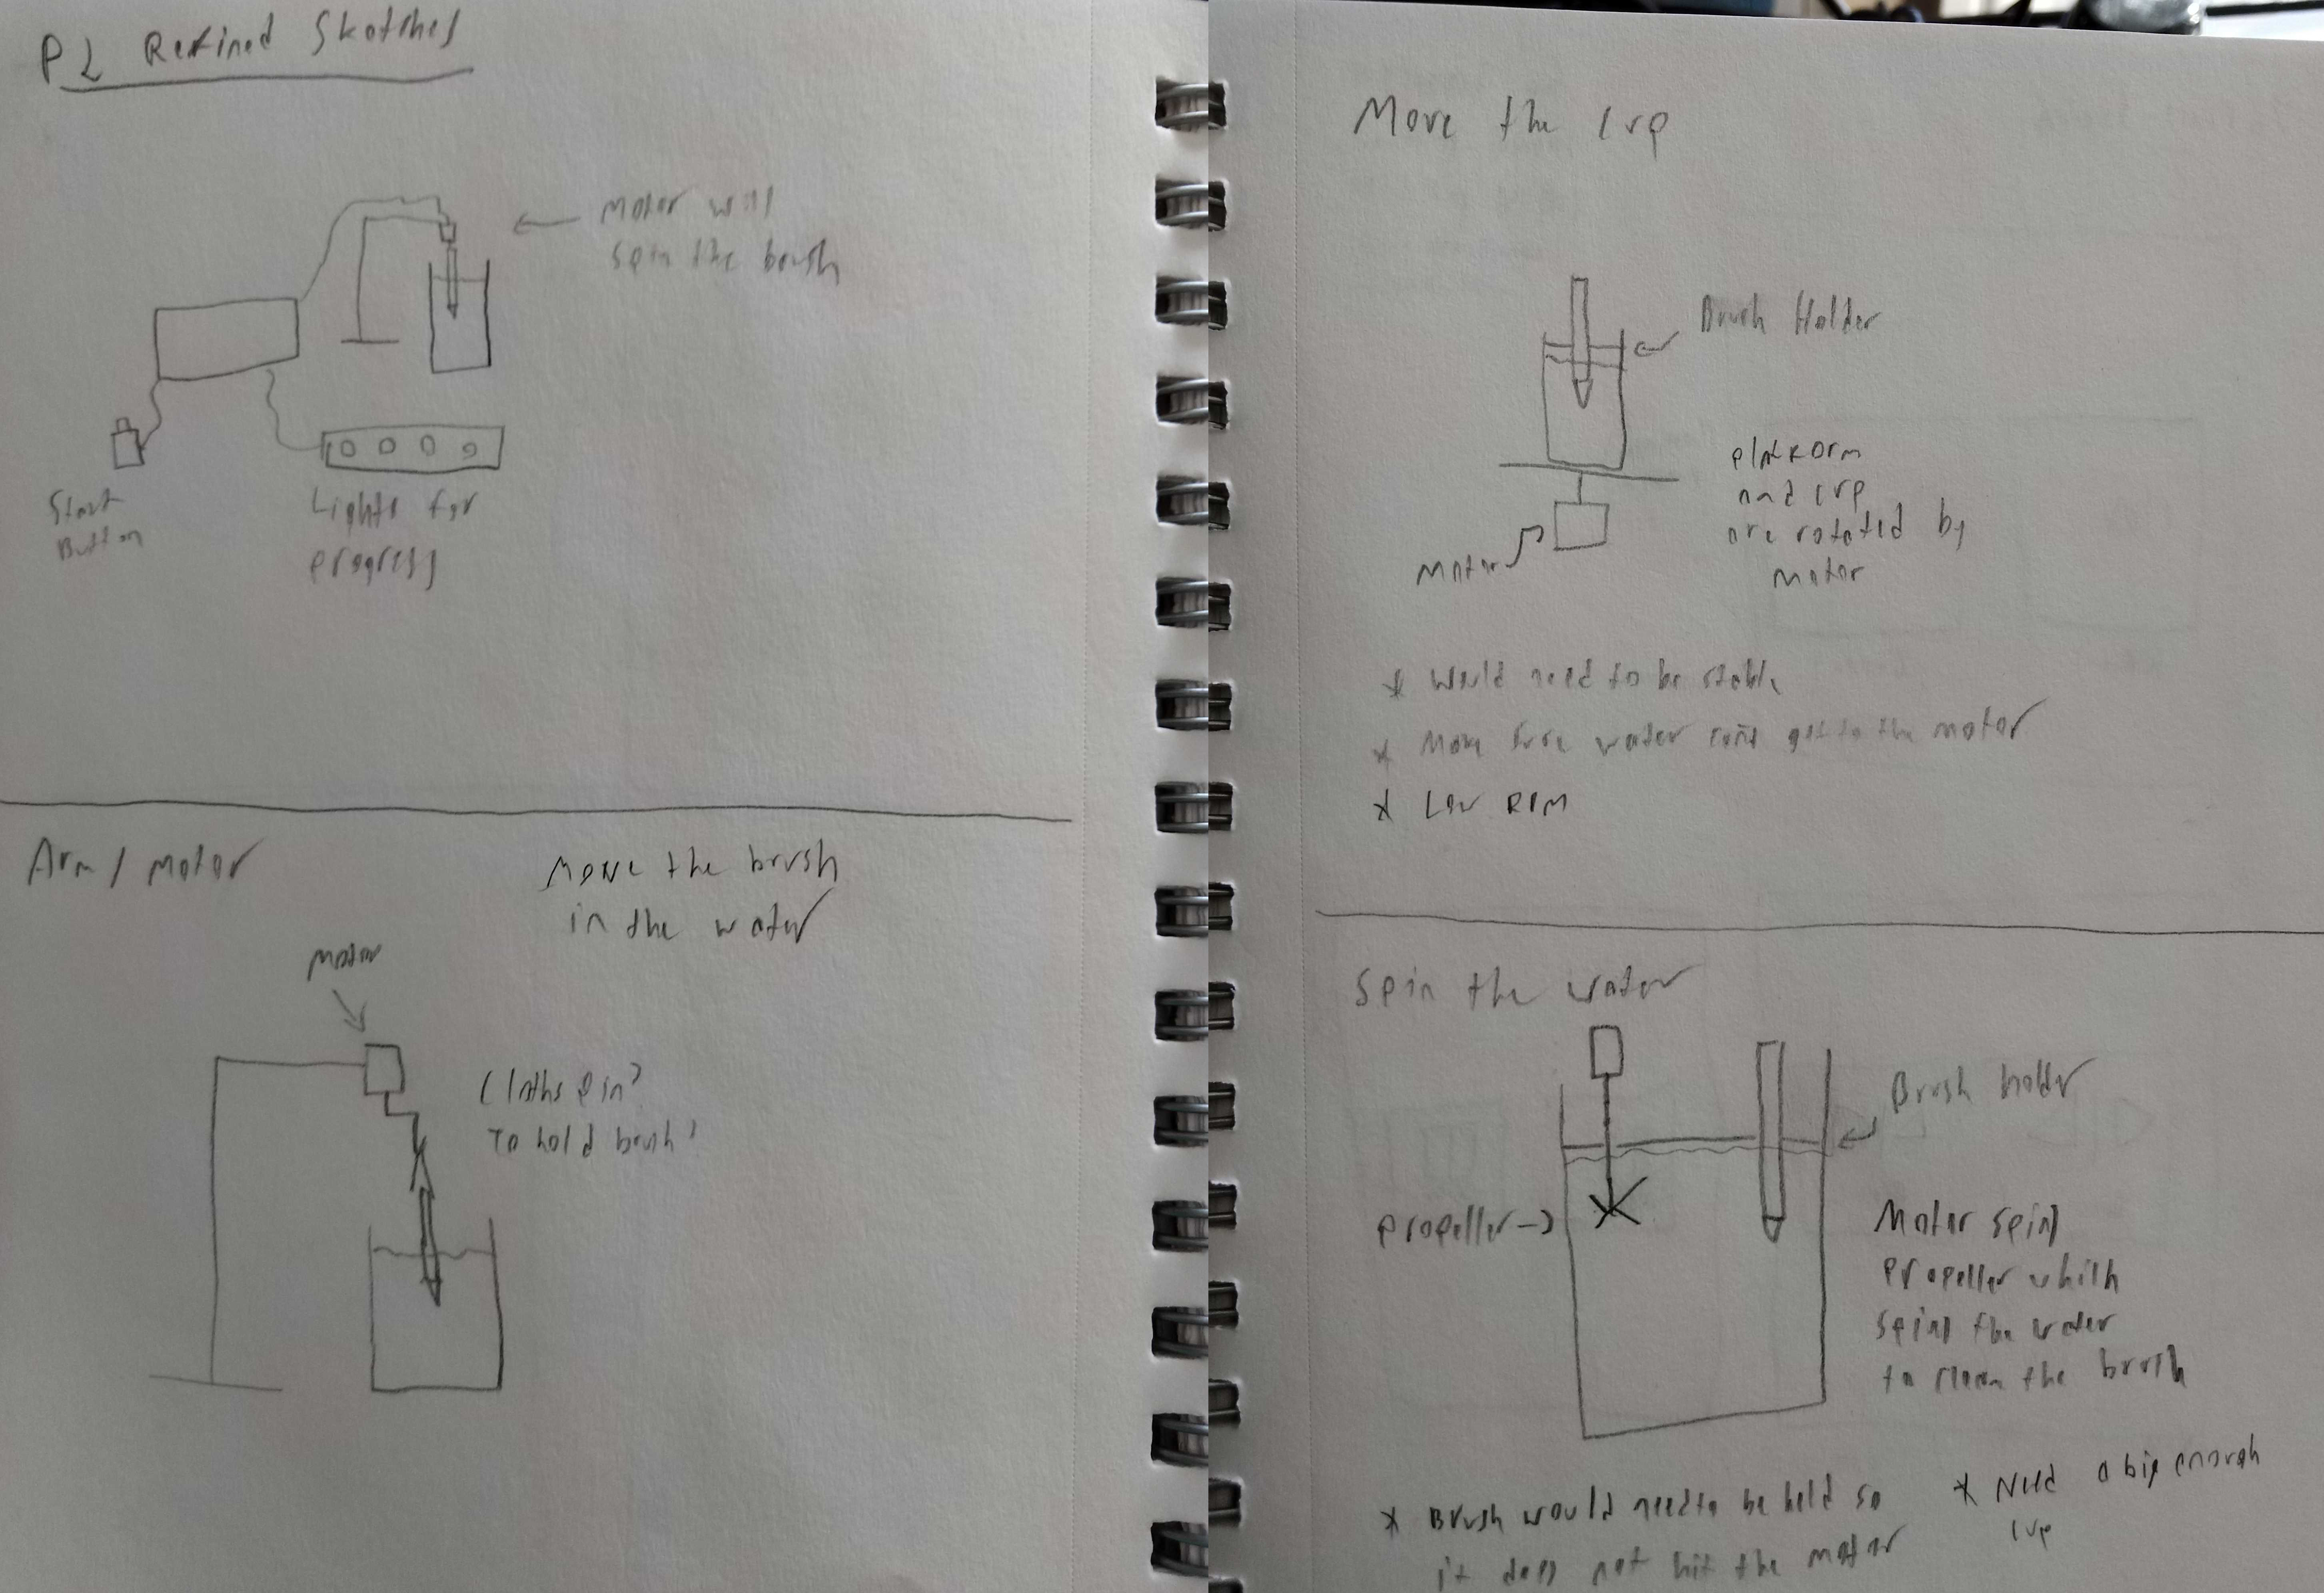 P2 Refined Sketches
Motor will
spin the brush
Start
Button
Lights for
progress
Arm / motor
Move the brush
in the water
Motor
Clothspin?
To hold brush?
Move the cup
Brush Holder
platform
and cup
are rotated by
motor
Motor
* Would need to be stable
* Make sure water cant get to the motor
* Low RPM
Spin the water
Brush holder
propeller
Motor spins
propeller which
spins the water
to clean the brush
* Brush would need to be held so
it does not hit the motor
* Need a big enough
cup